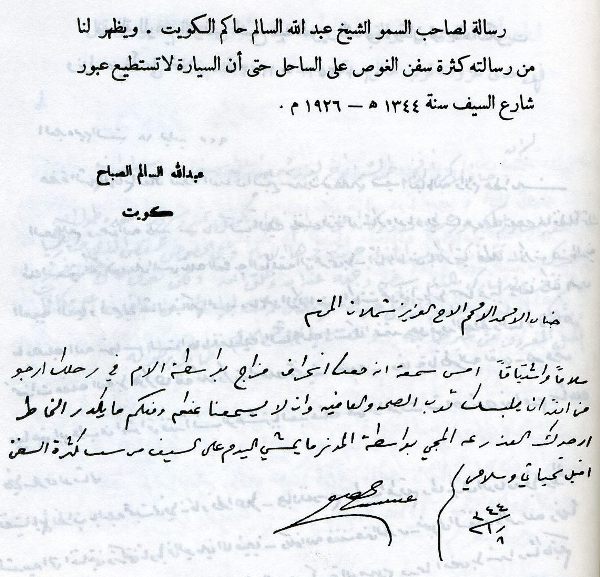 رسالة لصاحب السمو الشيخ عبد الله السالم حاكم الكويت . ويظهر لنا
من رسالته كثرة سفن الغوص على الساحل حتى أن السيارة لا تستطيع عبور
شارع السيف سنة ١٣٤٤ ه – ١٩٢٦ م .
عبدالله السالم الصباح
كويت
جناب الاخ العزيز شملان المحترم
سلاماً واشتياقاً امس سمعة انه معك انحراف مزاج بواسطة الام في رجلك ارجو
من الله ان يلبسك ثوب الصحه والعافيه وان لا يسمعنا عنكم ما يكدر الخاطر
ارجوك العذر عن المجي بواسطة المدنر ما يمشي اليوم على السيف من سبب كثرة السفن
اقبل تحياتي وسلامي